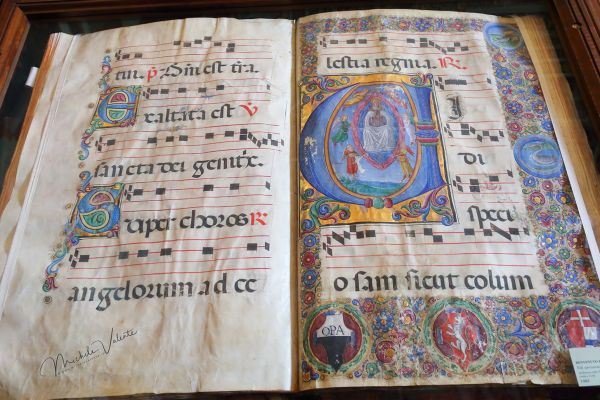 tui. est
Exaltata est V
sancta dei
Super choros R
angelorum ad ce
lestia regna. R.
VI
DI
speci
osam sicut colum
OPA
Michele Valente